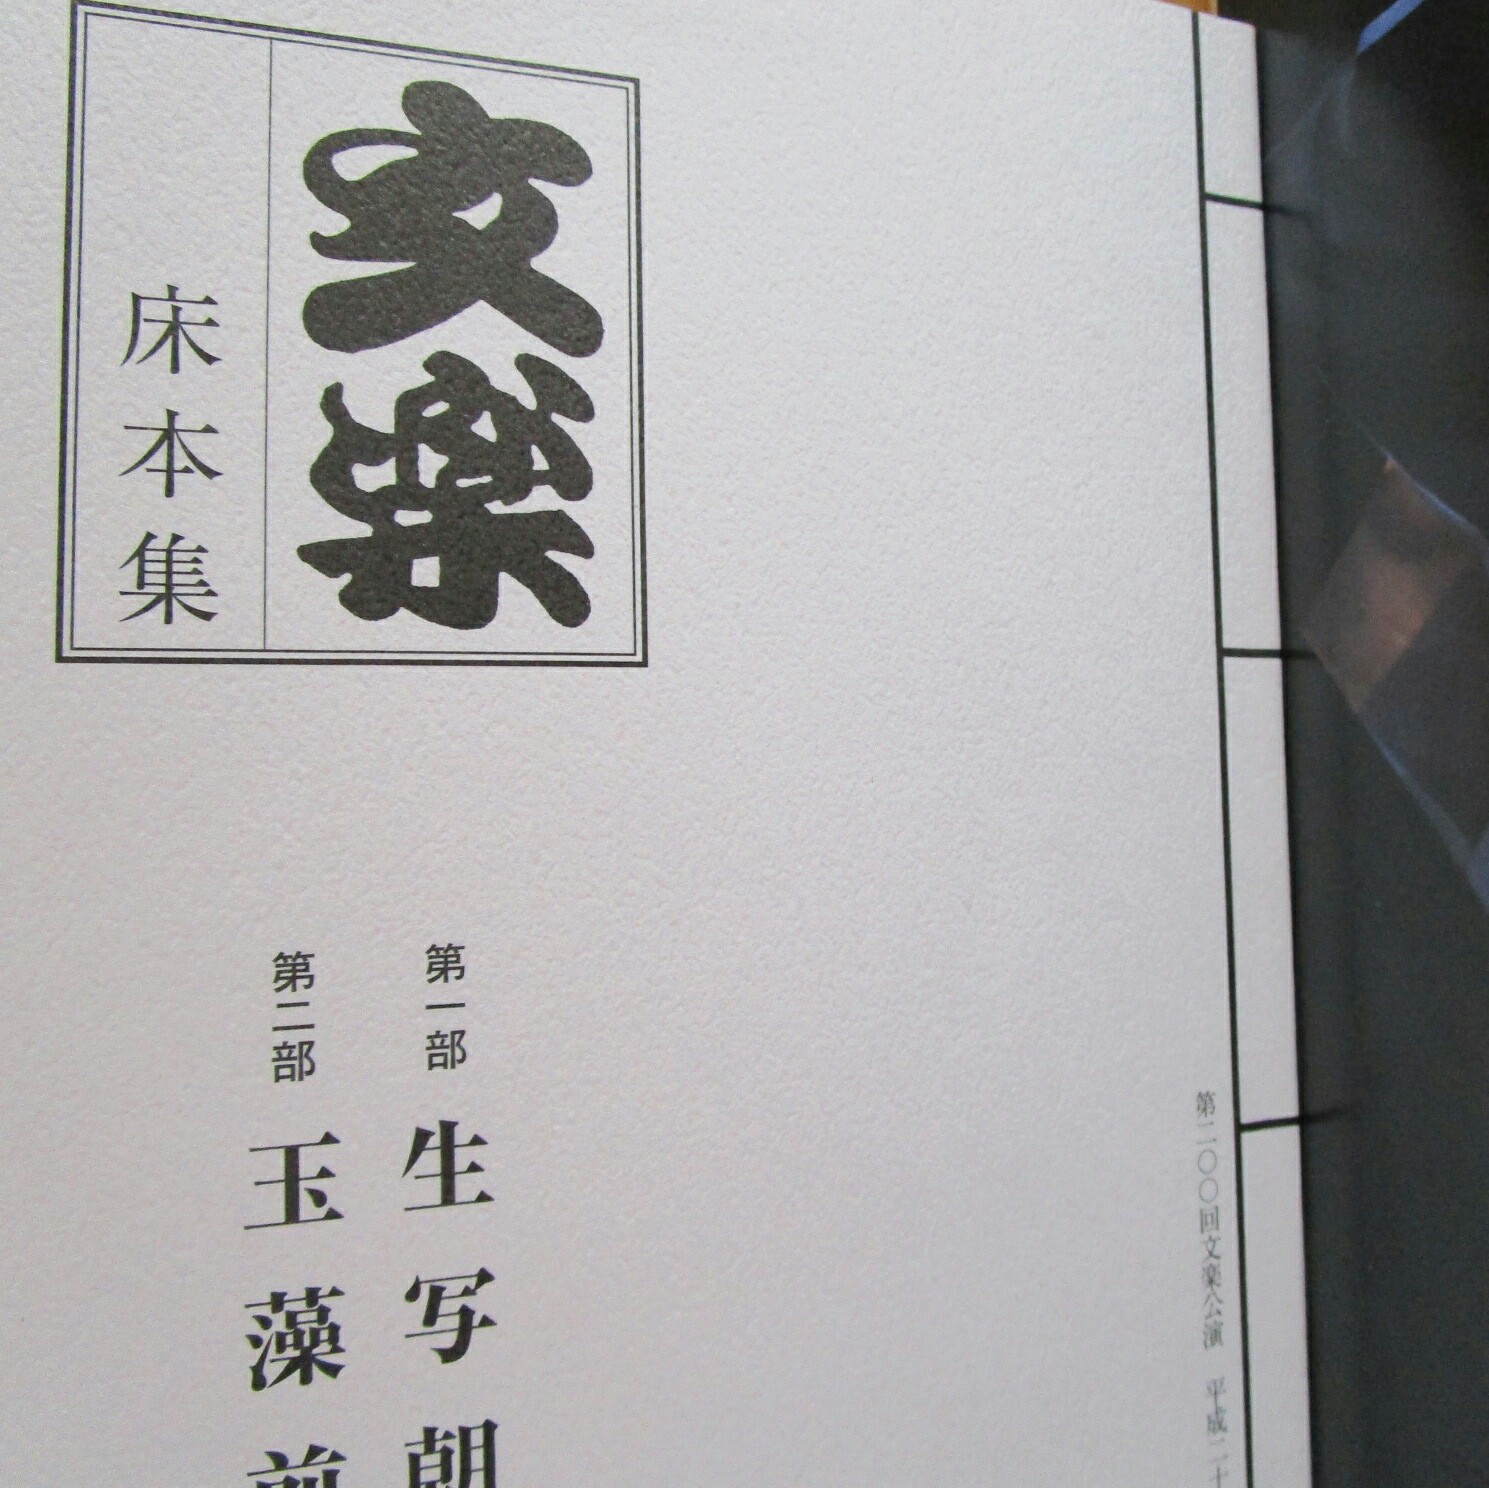 文楽
床本集
第一部 生写朝
第二部 玉藻前
第二〇〇回文楽公演 平成二十